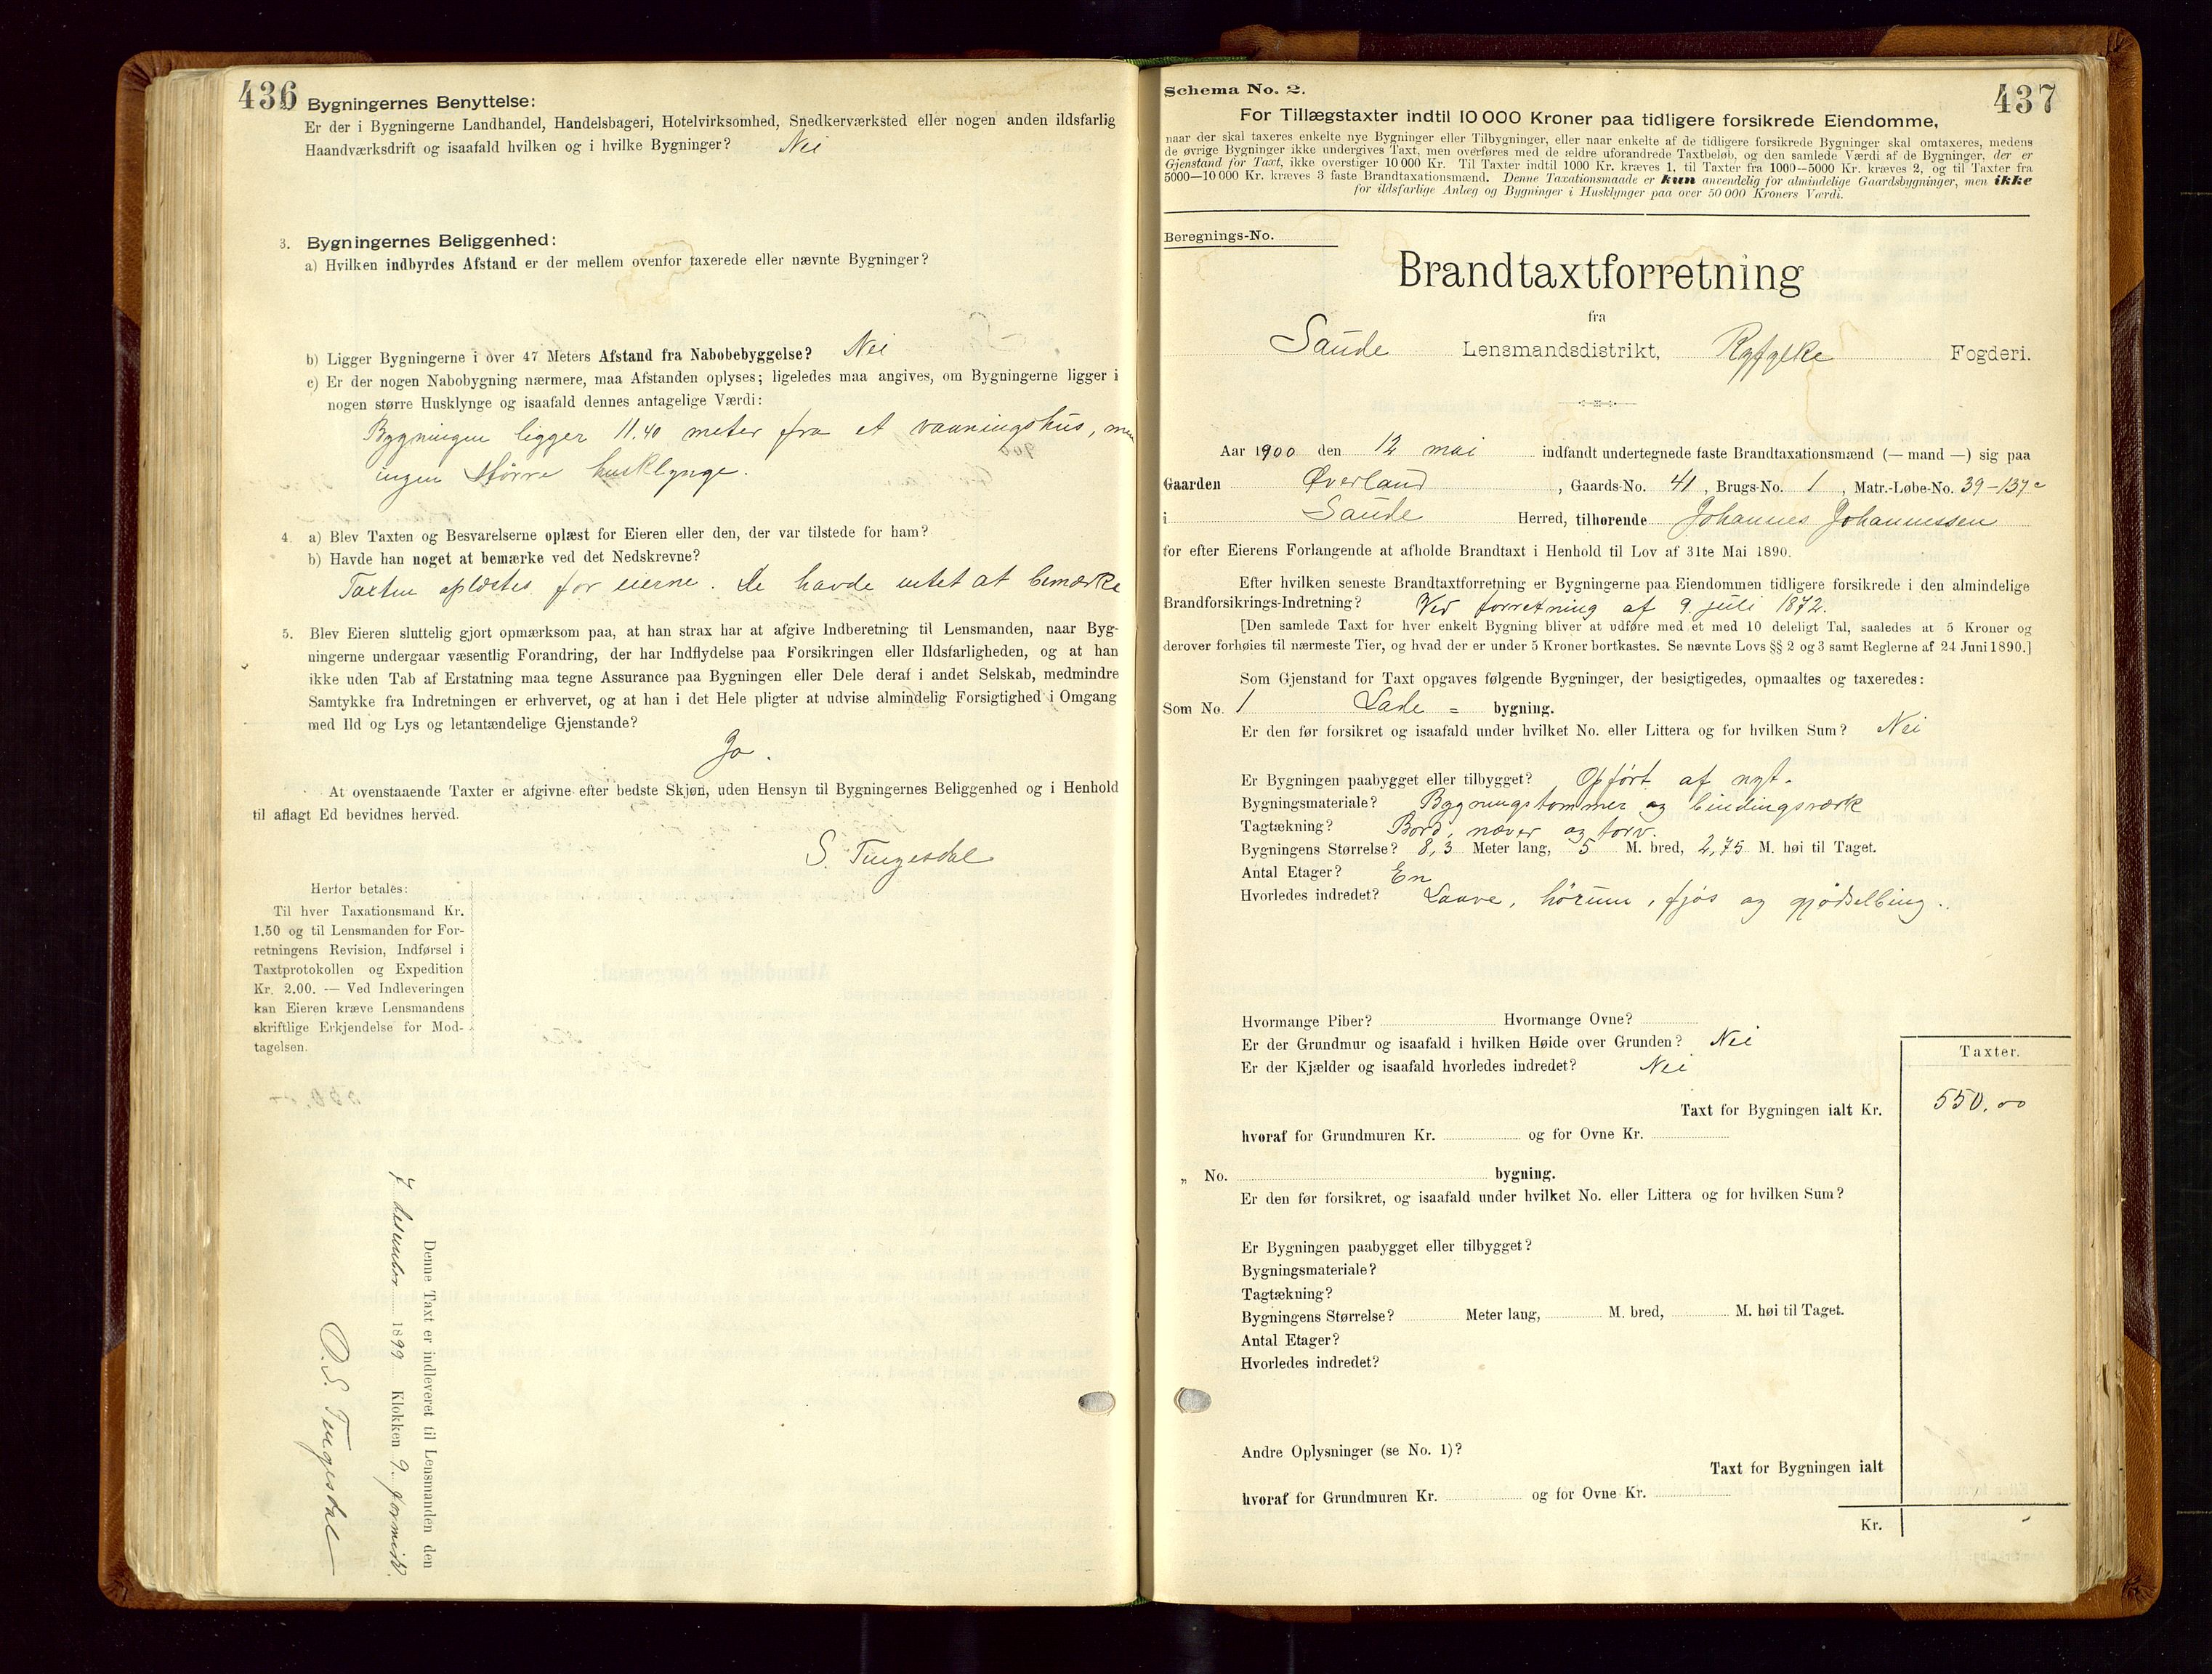 436
Bygningernes Benyttelse:
Er der i Bygningerne Landhandel, Handelsbageri, Hotelvirksomhed, Snedkerværksted eller nogen anden ildsfarlig
Haandværksdrift og isaafald hvilken og i hvilke Bygninger? Nei
3. Bygningernes Beliggenhed:
a) Hvilken indbyrdes Afstand er der mellem ovenfor taxerede eller nævnte Bygninger?
b) Ligger Bygningerne i over 47 Meters Afstand fra Nabobebyggelse? Nei
c) Er der nogen Nabobygning nærmere, maa Afstanden oplyses; ligeledes maa angives, om Bygningerne ligger i
nogen større Husklynge og isaafald dennes antagelige Værdi:
Bygningen ligger 11.40 meter fra et vaaningshus, men
ingen større husklynge.
4. a) Blev Taxten og Besvarelserne oplæst for Eieren eller den, der var tilstede for ham?
b) Havde han noget at bemærke ved det Nedskrevne?
Taxten oplæstes for eierne. De havde intet at bemærke
5. Blev Eieren sluttelig gjort opmærksom paa, at han strax har at afgive Indberetning til Lensmanden, naar Byg-
ningerne undergaar væsentlig Forandring, der har Indflydelse paa Forsikringen eller Ildsfarligheden, og at han
ikke uden Tab af Erstatning maa tegne Assurance paa Bygningen eller Dele deraf i andet Selskab, medmindre
Samtykke fra Indretningen er erhvervet, og at han i det Hele pligter at udvise almindelig Forsigtighed i Omgang
med Ild og Lys og letantændelige Gjenstande?
Ja.
At ovenstaaende Taxter er afgivne efter bedste Skjøn, uden Hensyn til Bygningernes Beliggenhed og i Henhold
til aflagt Ed bevidnes herved.
S. Tingesdal
Herfor betales:
Til hver Taxationsmand Kr.
1.50 og til Lensmanden for For-
retningens Revision, Indførsel i
Taxtprotokollen og Expedition
Kr. 2.00. — Ved Indleveringen
kan Eieren kræve Lensmandens
skriftlige Erkjendelse for Mod-
tagelsen.
Denne Taxt er indleveret til Lensmanden den
7 desember 1899 Klokken 9. formidd.
O. S. Tingesdal
437
Schema No. 2.
For Tillægstaxter indtil 10 000 Kroner paa tidligere forsikrede Eiendomme,
naar der skal taxeres enkelte nye Bygninger eller Tilbygninger, eller naar enkelte af de tidligere forsikrede Bygninger skal omtaxeres, medens
de øvrige Bygninger ikke undergives Taxt, men overføres med de ældre uforandrede Taxtbeløb, og den samlede Værdi af de Bygninger, der er
Gjenstand for Taxt, ikke overstiger 10 000 Kr. Til Taxter indtil 1000 Kr. kræves 1, til Taxter fra 1000—5000 Kr. kræves 2, og til Taxter fra
5000—10 000 Kr. kræves 3 faste Brandtaxationsmænd. Denne Taxationsmaade er kun anvendelig for almindelige Gaardsbygninger, men ikke
for ildsfarlige Anlæg og Bygninger i Husklynger paa over 50 000 Kroners Værdi.
Beregnings-No.
Brandtaxtforretning
fra
Saude Lensmandsdistrikt, Ryfylke Fogderi.
Aar 1900 den 12 mai indfandt undertegnede faste Brandtaxationsmænd (— mand —) sig paa
Gaarden Øverland, Gaards-No. 41, Brugs-No. 1, Matr.-Løbe-No. 39-137c
i Saude Herred, tilhørende Johannes Johannessen
for efter Eierens Forlangende at afholde Brandtaxt i Henhold til Lov af 31te Mai 1890.
Efter hvilken seneste Brandtaxtforretning er Bygningerne paa Eiendommen tidligere forsikrede i den almindelige
Brandforsikrings-Indretning? Ved forretning af 9. juli 1872.
[Den samlede Taxt for hver enkelt Bygning bliver at udføre med et med 10 deleligt Tal, saaledes at 5 Kroner og
derover forhøies til nærmeste Tier, og hvad der er under 5 Kroner bortkastes. Se nævnte Lovs §§ 2 og 3 samt Reglerne af 24 Juni 1890.]
Som Gjenstand for Taxt opgaves følgende Bygninger, der besigtigedes, opmaaltes og taxeredes:
Som No. 1 Lade = bygning.
Er den før forsikret og isaafald under hvilket No. eller Littera og for hvilken Sum? Nei
Er Bygningen paabygget eller tilbygget? Opført af nyt.
Bygningsmateriale? Bygningstømmer og bindingsværk
Tagtækning? Bord, næver og torv.
Bygningens Størrelse? 8,3 Meter lang, 5 M. bred, 2,75 M. høi til Taget.
Antal Etager? En
Hvorledes indredet? Laave, hørum, fjøs og gjødselbing.
Hvormange Piber? Hvormange Ovne?
Er der Grundmur og isaafald i hvilken Høide over Grunden? Nei
Er der Kjælder og isaafald hvorledes indredet? Nei
Taxter.
Taxt for Bygningen ialt Kr. 550,00
hvoraf for Grundmuren Kr. og for Ovne Kr.
„ No. bygning.
Er den før forsikret, og isaafald under hvilket No. eller Littera og for hvilken Sum?
Er Bygningen paabygget eller tilbygget?
Bygningsmateriale?
Tagtækning?
Bygningens Størrelse? Meter lang, M. bred, M. høi til Taget.
Antal Etager?
Hvorledes indredet?
Andre Oplysninger (se No. 1)?
Taxt for Bygningen ialt
hvoraf for Grundmuren Kr. og for Ovne Kr.
Kr.